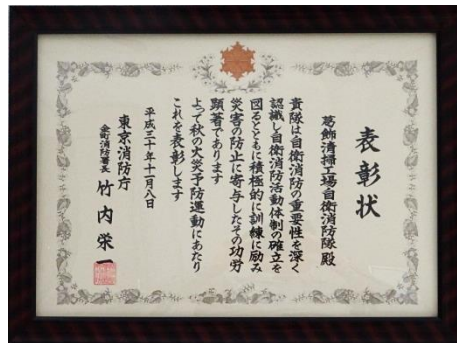 表彰状
葛飾清掃工場自衛消防隊殿
貴隊は自衛消防の重要性を深く
認識し自衛消防活動体制の確立を
図るとともに積極的に訓練に励み
災害の防止に寄与したその功労
顕著であります
よって秋の火災予防運動にあたり
これを表彰します
平成三十年十一月八日
東京消防庁
金町消防署長 竹内栄一